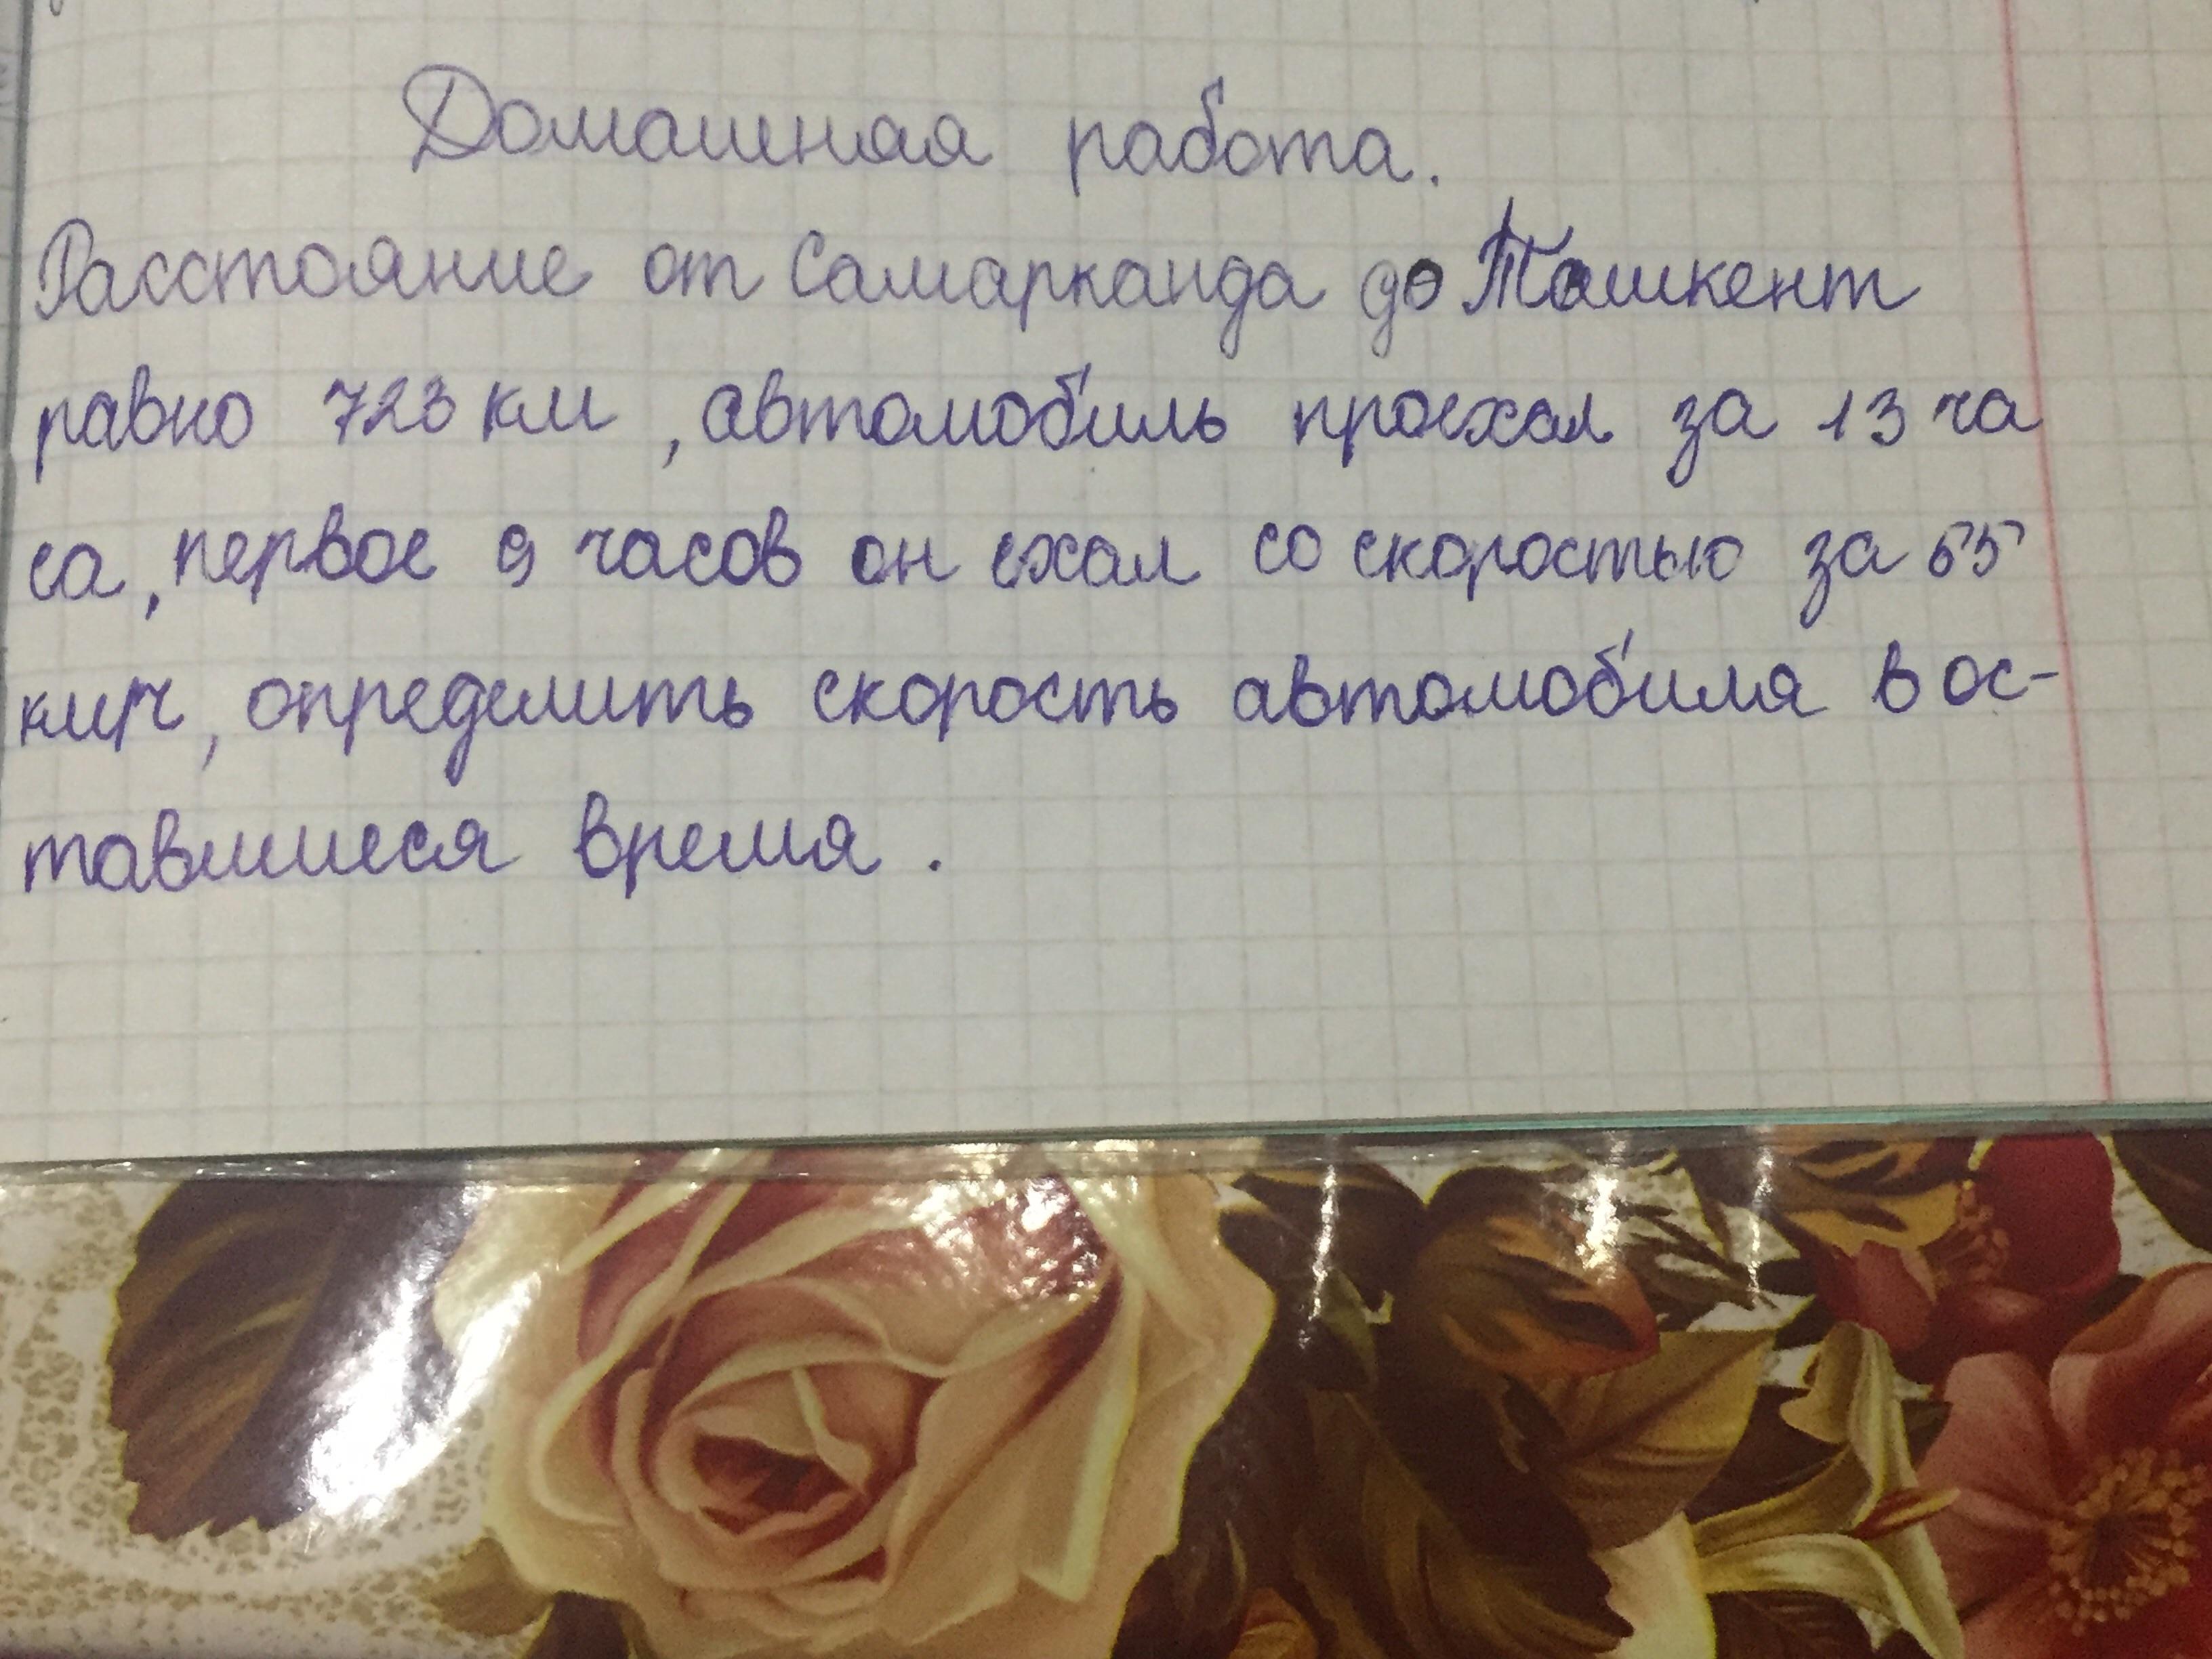 Домашная работа.
Расстояние от Самарканда до Ташкент
равно 723 км, автомобиль проехал за 13 ча
са, первое 9 часов он ехал со скоростью за 55
км/ч, определить скорость автомобиля в ос-
тавшиеся время.